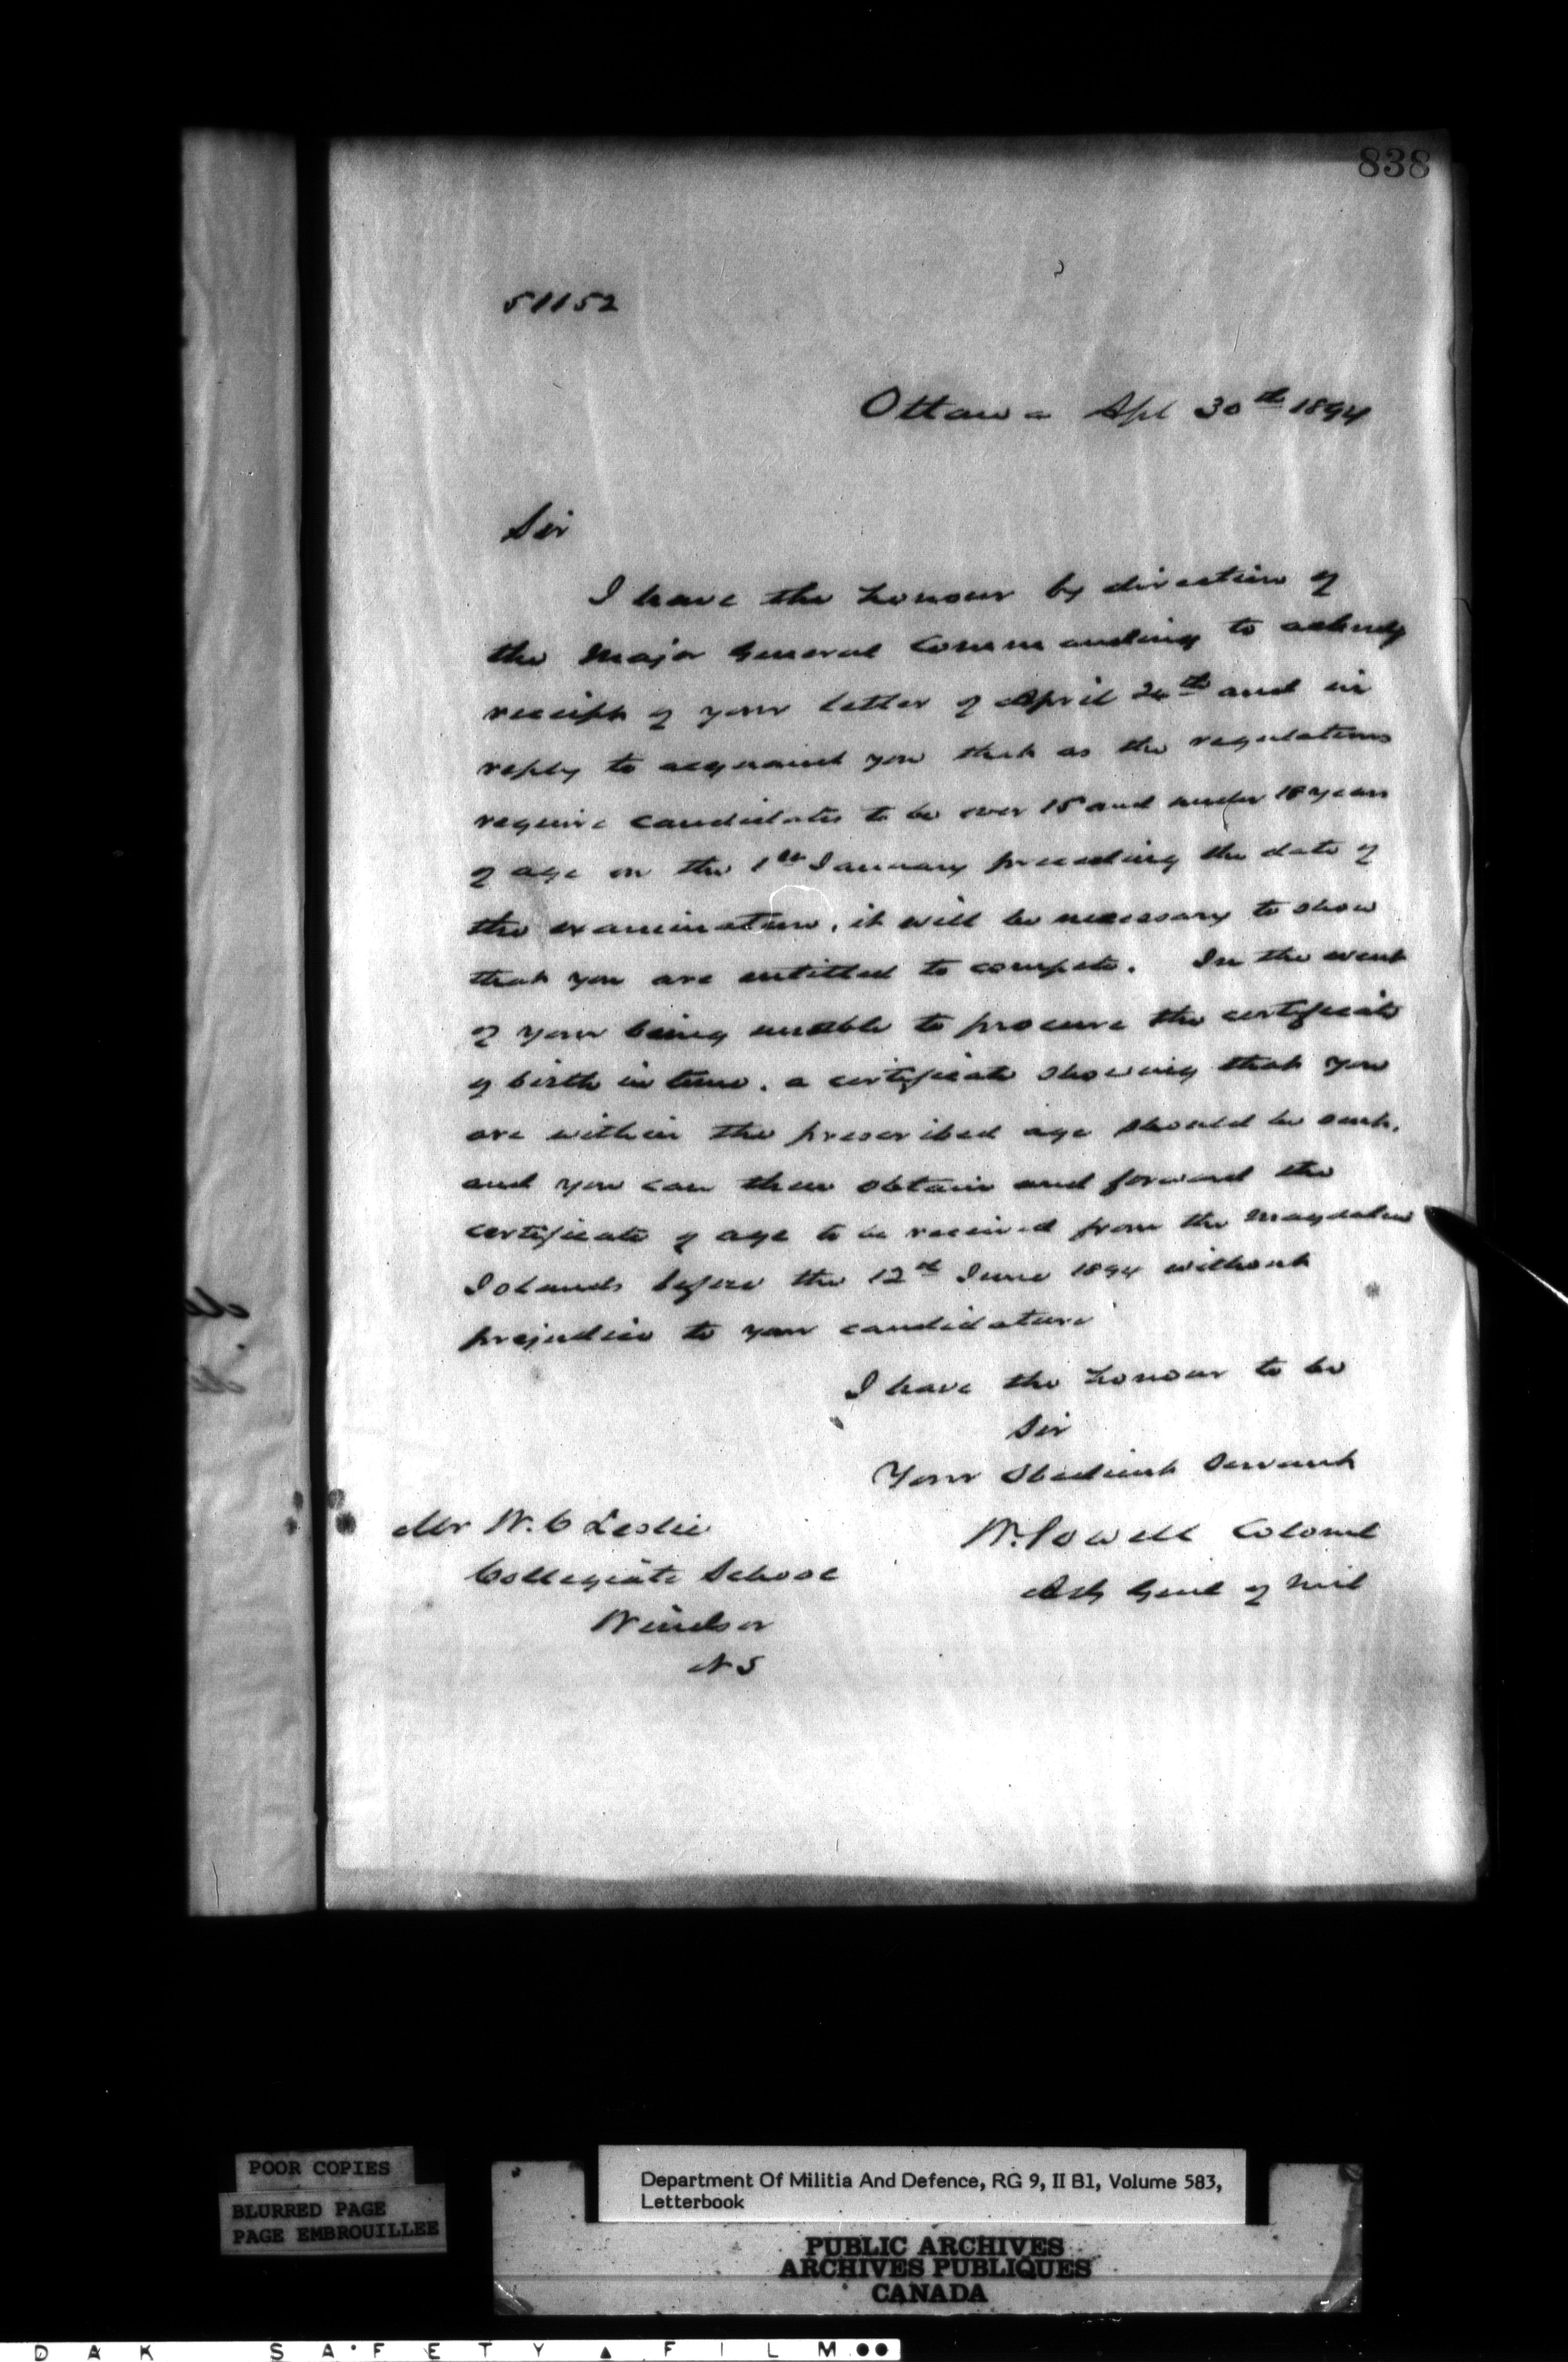 838
51152
Ottawa Apl 30th 1894
Sir
I have the honour by direction of
the Major General Commanding to ackndg
receipt of your letter of April 24th and in
reply to acquaint you that as the regulations
require candidates to be over 15 and under 18 years
of age on the 1st January preceding the date of
the examination, it will be necessary to show
that you are entitled to compete. In the event
of your being unable to procure the certificate
of birth in time, a certificate showing that you
are within the prescribed age should be sent,
and you can then obtain and forward the
certificate of age to be received from the Magdalen
Islands before the 12th June 1894 without
prejudice to your candidature
I have the honour to be
Sir
Your Obedient Servant
W. Powell Colonel
Adj Genl of Mil
Mr W. C Leslie
Collegiate School
Windsor
N S
POOR COPIES
BLURRED PAGE
PAGE EMBROUILLEE
Department Of Militia And Defence, RG 9, II B1, Volume 583,
Letterbook
PUBLIC ARCHIVES
ARCHIVES PUBLIQUES
CANADA
DAK SAFETY ▲ FILM ●●